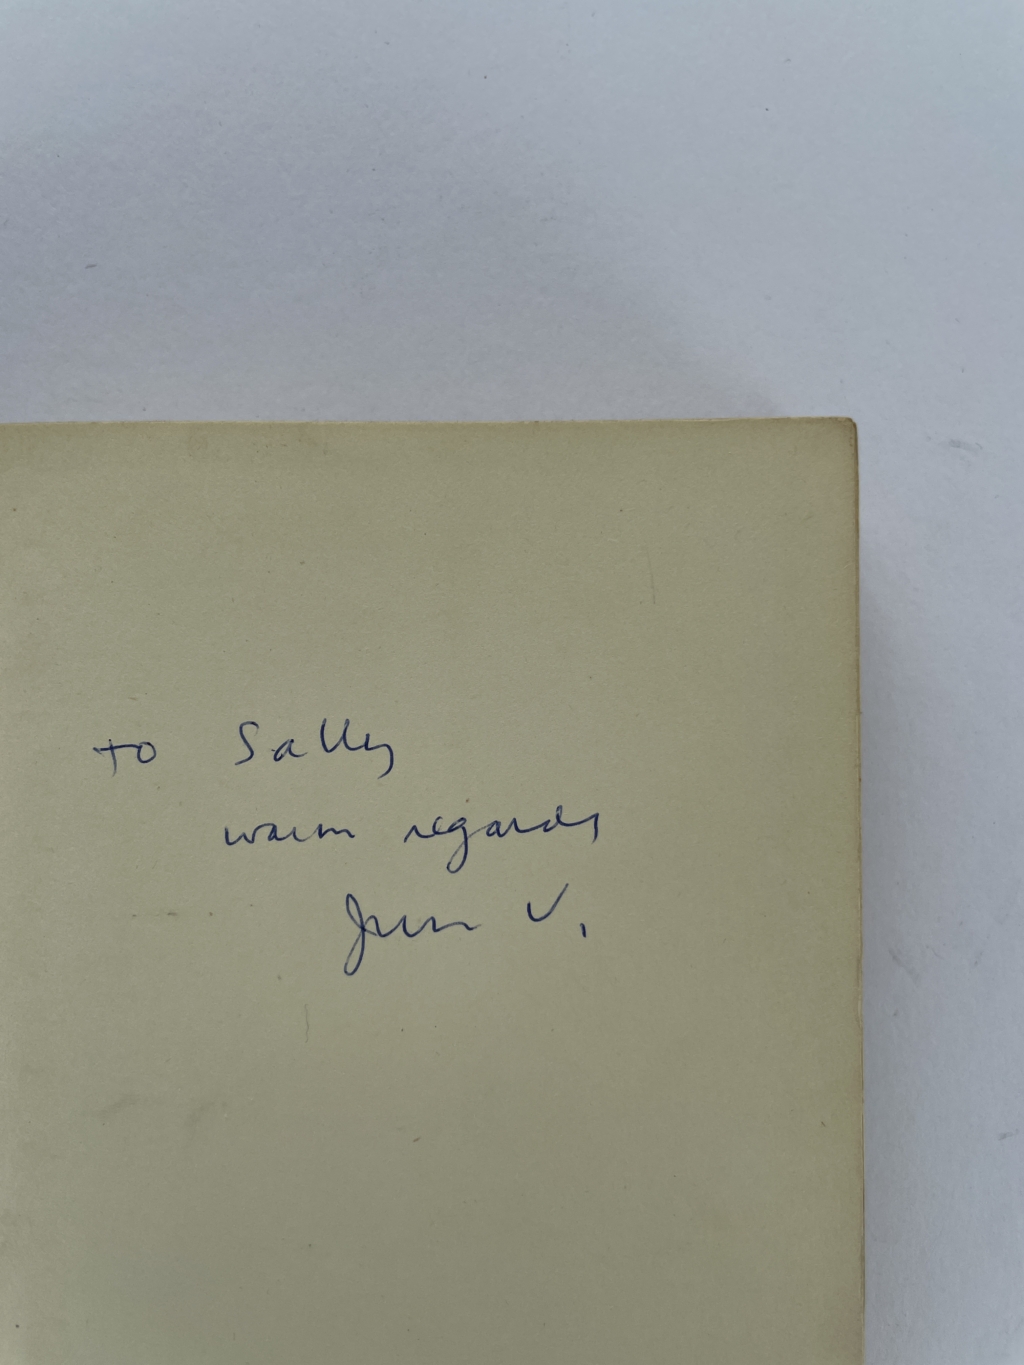 to Sally
warm regards
V.